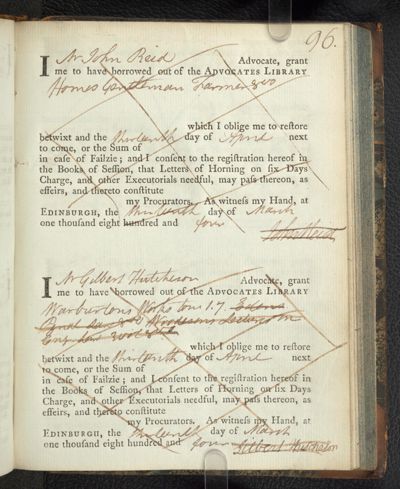 96.
I Mr John Reid Advocate, grant
me to have borrowed out of the ADVOCATES LIBRARY
Homes Gentleman Farmer 8vo
which I oblige me to reſtore
betwixt and the thirteenth day of April next
to come, or the Sum of
in caſe of Failzie; and I conſent to the regiſtration hereof in
the Books of Seſſion, that Letters of Horning on ſix Days
Charge, and other Executorials needful, may paſs thereon, as
effeirs, and thereto conſtitute
my Procurators. As witneſs my Hand, at
EDINBURGH, the thirteenth day of March
one thouſand eight hundred and four
John Reid
I Mr Gilbert Hutcheson Advocate, grant
me to have borrowed out of the ADVOCATES LIBRARY
Warburtons Works tom 1.7.
Woodesons Lectures on
which I oblige me to reſtore
betwixt and the thirteenth day of April next
to come, or the Sum of
in caſe of Failzie; and I conſent to the regiſtration hereof in
the Books of Seſſion, that Letters of Horning on ſix Days
Charge, and other Executorials needful, may paſs thereon, as
effeirs, and thereto conſtitute
my Procurators. As witneſs my Hand, at
EDINBURGH, the thirteenth day of March
one thouſand eight hundred and four
Gilbert Hutcheson